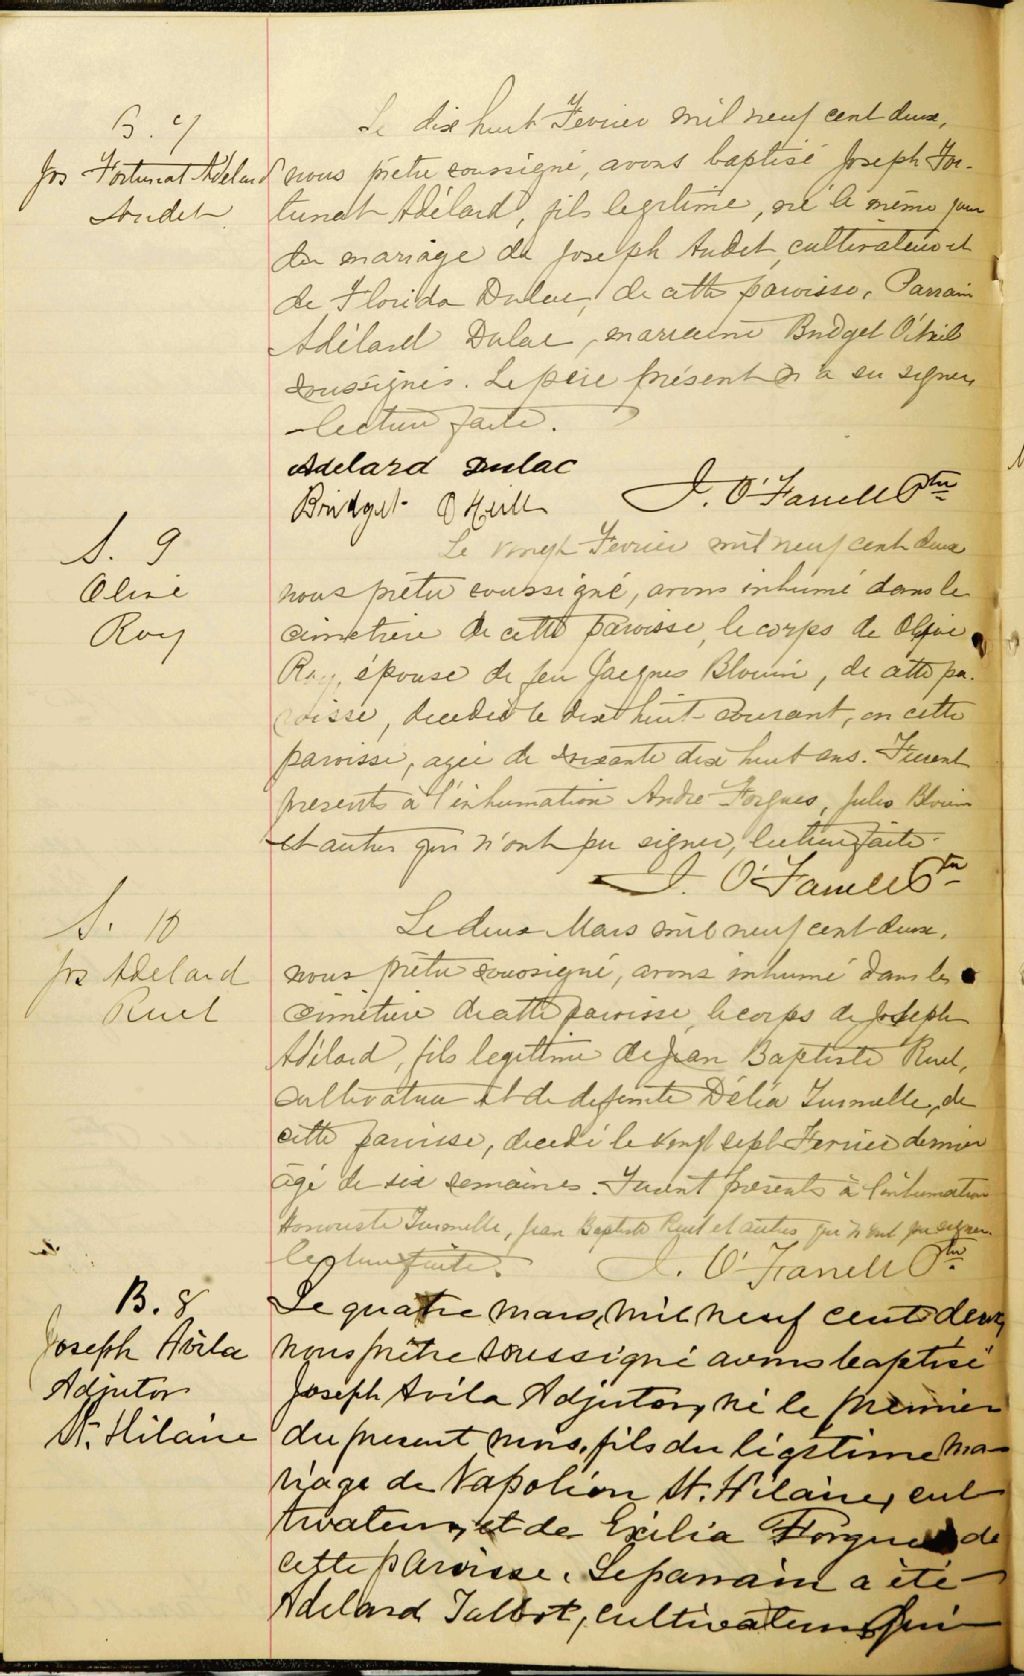 B. 7
Jos Fortunat Adélard
Audet
Le dix huit Fevrier mil neuf cent deux,
nous prêtre soussigné, avons baptisé Joseph For-
tunat Adélard, fils legitime, né le même jour
du mariage de Joseph Audet, cultivateur et
de Florida Dulac, de cette paroisse, Parrain
Adélard Dulac, marraine Bridget O'Neil
soussignés. Le père présent n'a su signer
lecture faite.
Adelard Dulac
Bridget O Neill
J. O'Farrell Ptre
S. 9
Olive
Roy
Le vingt Fevrier mil neuf cent deux
nous prêtre soussigné, avons inhumé dans le
cimetiere de cette paroisse, le corps de Olive
Roy, épouse de feu Jacques Blouin, de cette pa-
roisse, decedee le dix huit courant, en cette
paroisse, agée de soixante dix huit ans. Furent
presents à l'inhumation André Forgues, Jules Blouin
et autres qui n'ont pu signer, lecture faite.
J. O'Farrell Ptre
S. 10
Jos Adelard
Ruel
Le deux Mars mil neuf cent deux,
nous prêtre soussigné, avons inhumé dans le
cimetiere de cette paroisse, le corps de Joseph
Adélard, fils legitime de Jean Baptiste Ruel,
cultivateur et de defunte Délia Turmelle, de
cette paroisse, decedé le vingt sept Fevrier dernier
âgé de six semaines. Furent présents à l'inhumation
Turmelle, Jean Baptiste Ruel et autres qui n'ont pu signer.
lecture faite.
J. O'Farrell Ptre
B. 8
Joseph Avila
Adjutor
St. Hilaire
Le quatre mars, mil neuf cent deux,
nous prêtre soussigné avons baptisé
Joseph Avila Adjutor, né le premier
du present mois, fils du légitime ma-
riage de Napoléon St. Hilaire, cul-
tivateur, et de Exilia Forgues de
cette paroisse. Le parrain a été
Adelard Talbot, cultivateur, qui